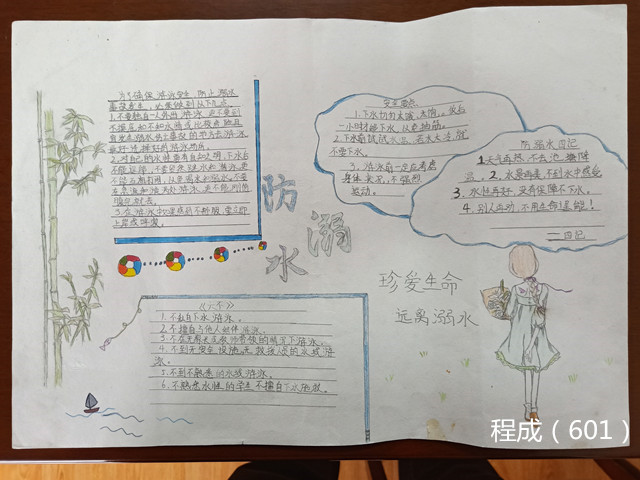 为了确保游泳安全，防止溺水
事故发生，必须做到以下几点。
1.不要独自一人外出游泳，更不要到
不摸底和不知水情或比较危险且
宜发生溺水伤亡事故的地方去游泳。
2.对自己的水性要有自知之明，下水后
不能逞能，不要贸然跳水和潜泳，更
不能互相打闹，以免喝水和溺水。不要
在急流和漩涡处游泳，更不能
3.在游泳中如果感到不舒服，要立即
上岸或呼救。
安全要点
1.下水切勿太饿、太饱。饭后
一小时才能下水，以免抽筋。
2.下水前试试水温，若水太冷，就
不要下水。
3.游泳前一定应考虑
身体状况，
运动。
防溺水日记
1.天气再热，不去池塘降
温。2.水景再美，不到水中感受
3.水性再好，没有保障不下水。
4.别人再劝，不用生命逞能！
——日记
防
溺
水
珍爱生命
远离溺水
《六不》
1.不私自下水游泳。
2.不擅自与他人结伴游泳。
3.不在无家长或教师带领的情况下游泳。
4.不到无安全设施、无救援人员的水域游
泳。
5.不到不熟悉的水域游泳。
6.不熟悉水性的学生不擅自下水施救。
程成（601）